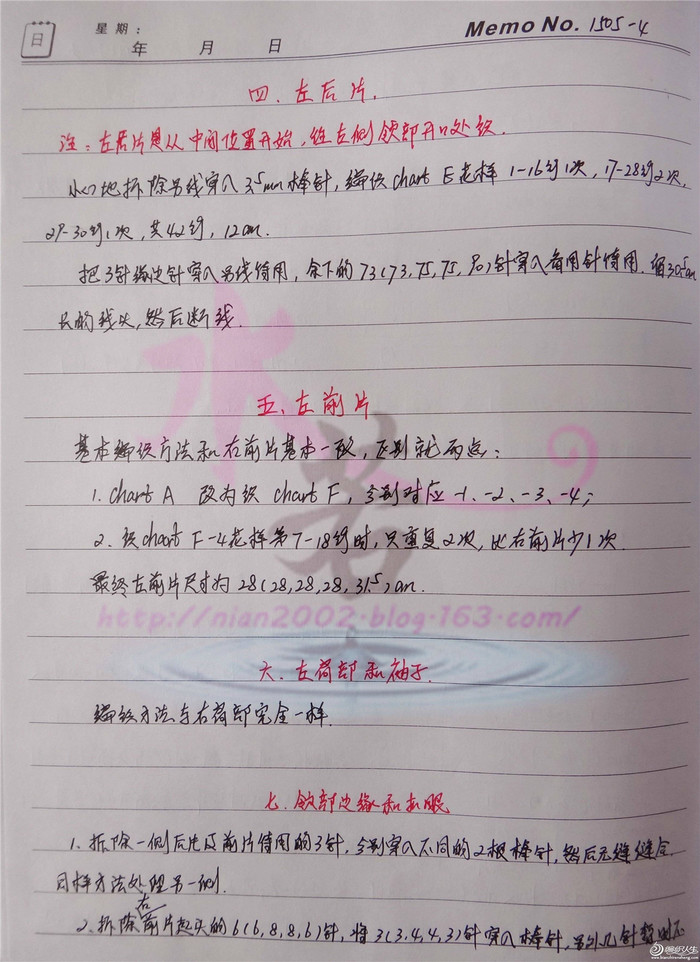 日
星期:
年 月 日
Memo No. 1505-4
四、左后片.
注:左后片是从中间位置开始,经左侧领部开口处织.
小心地拆除另线穿入3.5mm棒针,编织chart E花样 1-16行1次,17-28行2次,
29-30行1次,共42行,12cm.
把3针缘边针穿入另线待用,余下的73(73,75,75,80)针穿入备用针待用.留30.5cm
长的线头,然后断线.
五、左前片
基本编织方法和右前片基本一致,区别就两点:
1. chart A 改为织 chart F,分别对应-1、-2、-3、-4;
2. 织chart F-4花样第7-18行时,只重复2次,比右前片少1次.
最终左前片尺寸为28(28,28,28,31.5)cm.
水若
http://nian2002.blog.163.com/
六、左肩部和袖子.
编织方法与右肩部完全一样.
七、领部边缘和扣眼
1. 拆除一侧后片及前片待用的3针,分别穿入不同的2根棒针,然后无缝缝合.
同样方法处理另一侧.
2. 拆除右前片起头的6(6,8,8,6)针,将3(3,4,4,3)针穿入棒针,另外几针
编织人生
www.bianzhirensheng.com